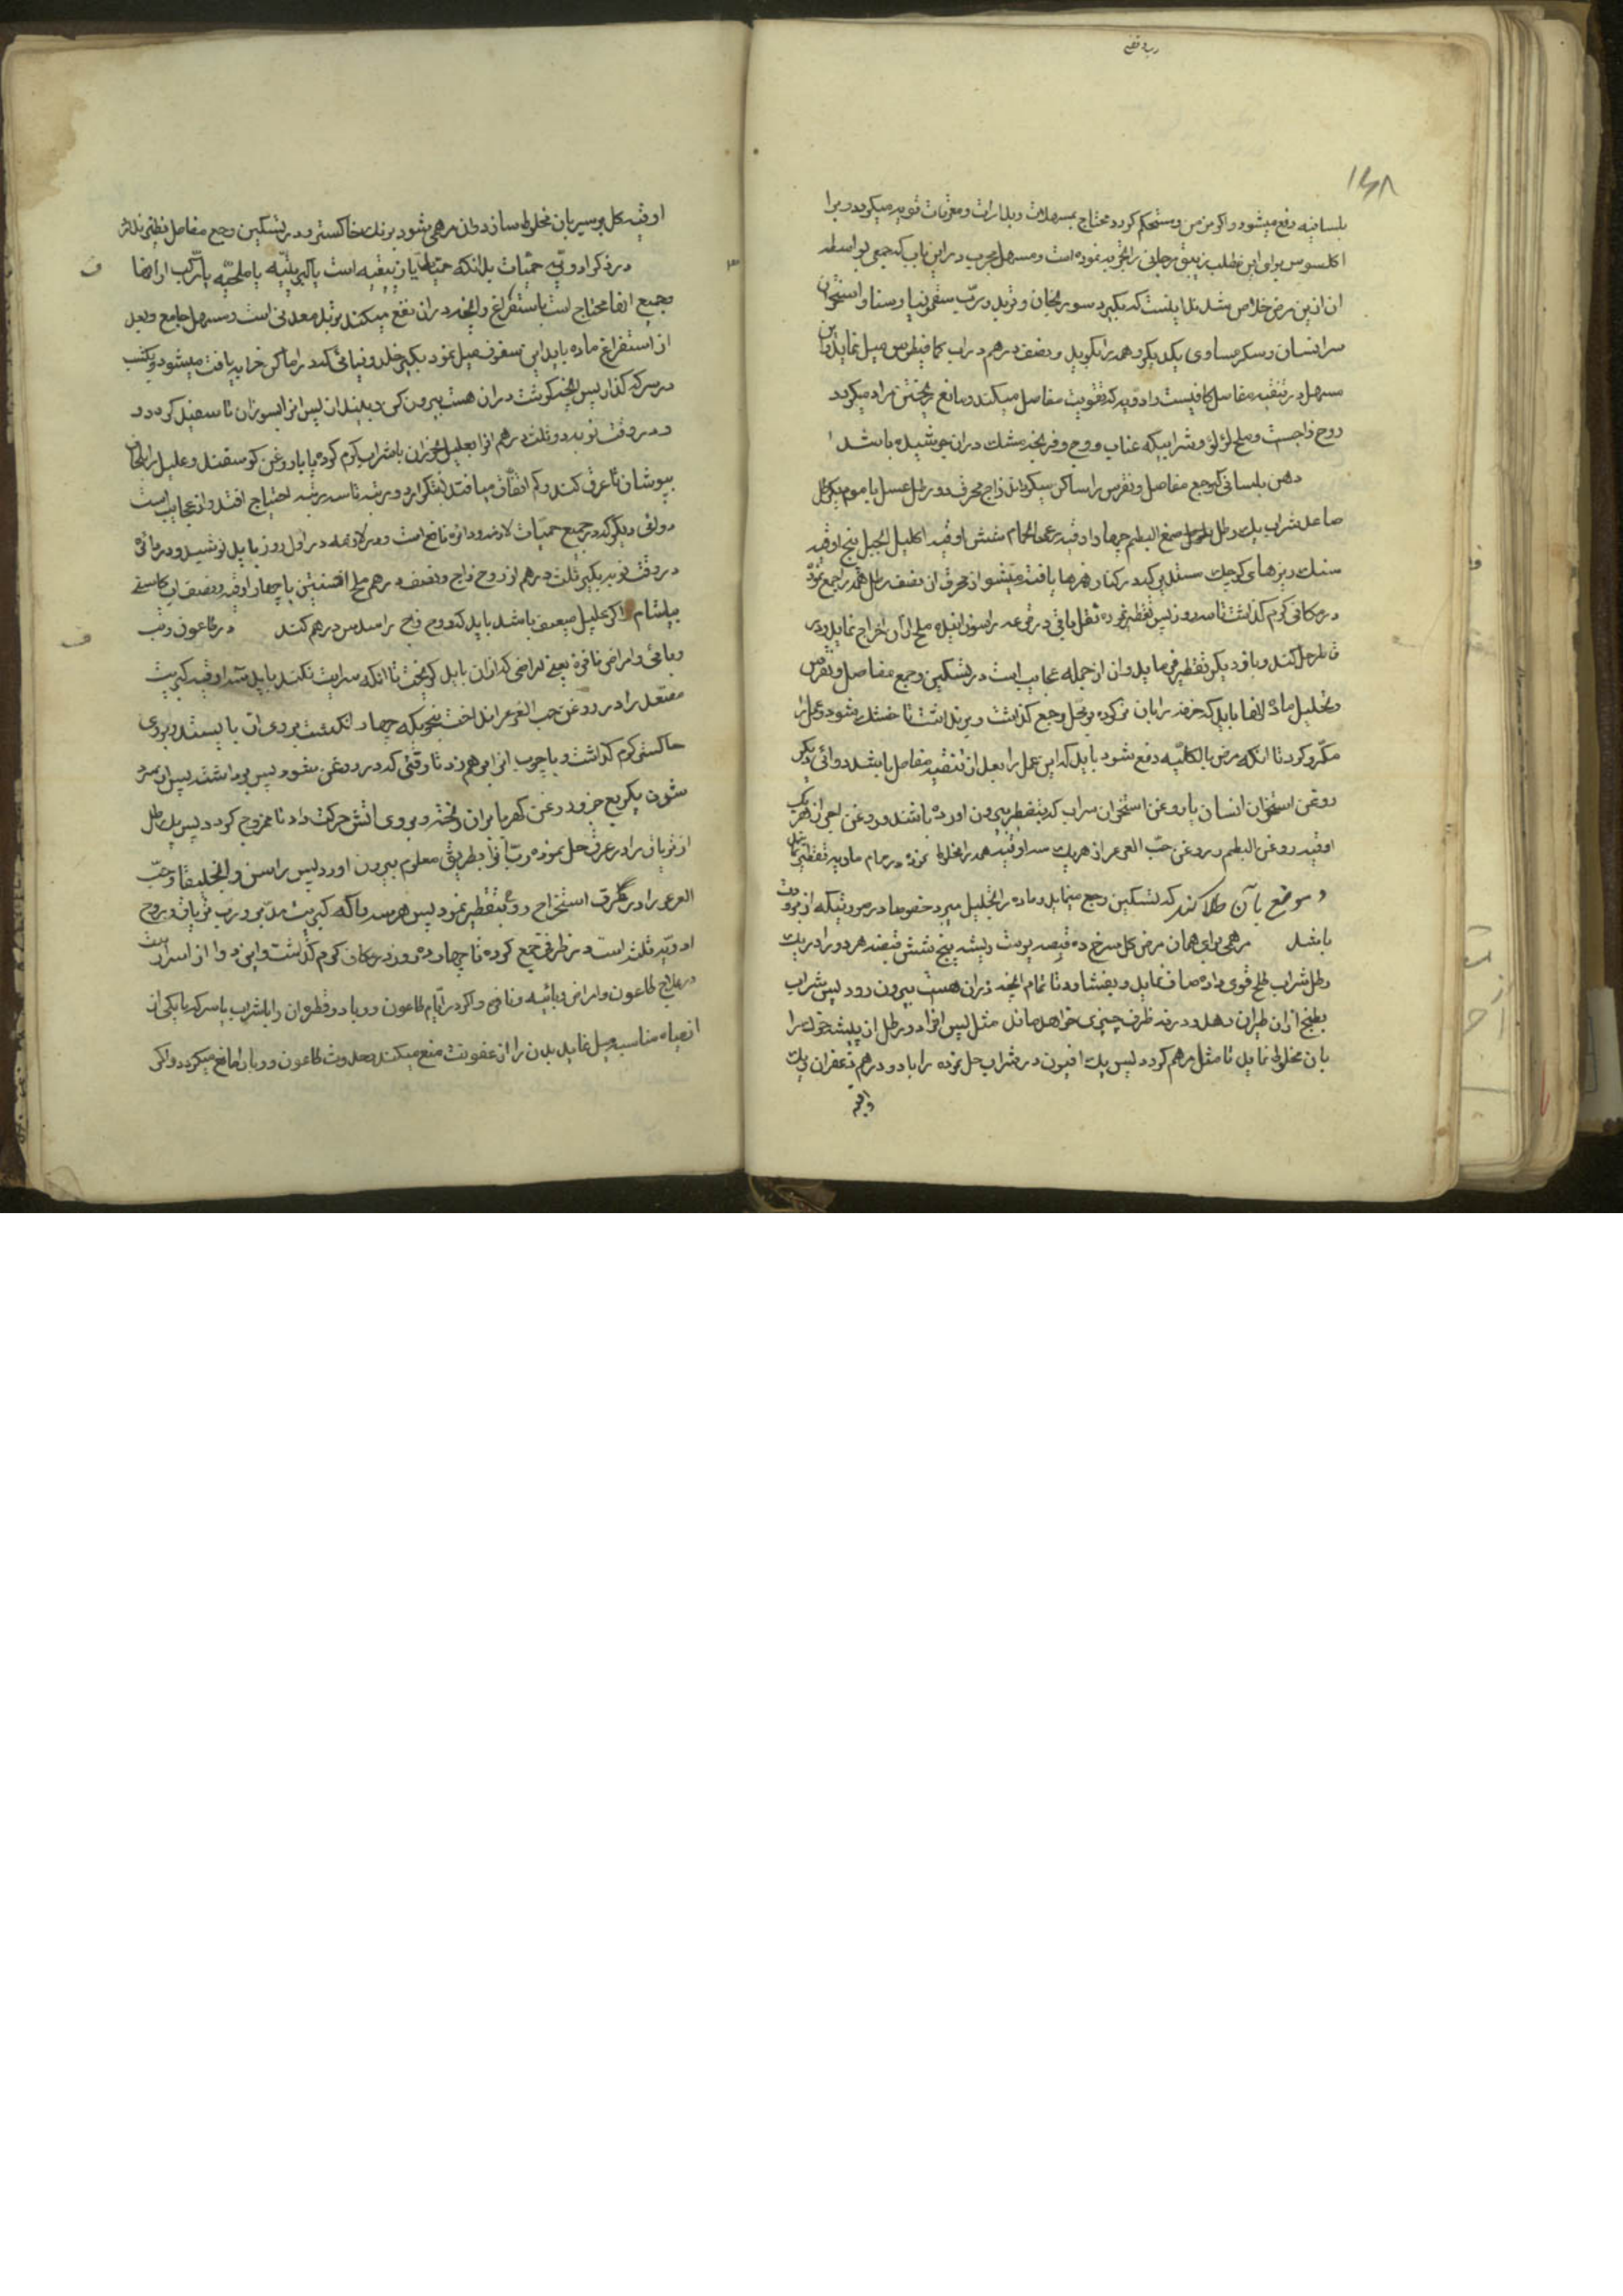 ۱۴۸
بلسانیه دفع میشود و اگر مزمن و مستحکم گردد محتاج بمسهلات و بدارات و معرقات قویه میگردد و برا
اکلسوس برای این مطلب زیبق مرجانی را تجربه نموده است و مسهل مجرب در این باب که جمعی بواسطه
ان ازین مرض خلاص شدند اینست که بگیرد سورنجان و تربد و رب سقمونیا و سنا و استخوان
سر انسان و سکر مساوی یکدیگر و همه را بکوبد و نصف درهم در اب کمافیطوس میل نماید و این
مسهل در تنقیه مفاصل کافیست و ادویه که تقویت مفاصل میکند و مانع ریختن مواد میگردد
روح زاجست و ملح لؤلؤ و شرابیکه عناب و وج و فرنجمشک در ان جوشیده باشد
دهن بلسانی که وجع مفاصل و نقرس را ساکن میگرداند زاج محرق دو رطل عسل یا موم یکرطل
صاعد شراب یک رطل صمغ البطم چهار اوقیه رعی الحمام شش اوقیه اکلیل الجبل پنج اوقیه
سنک ریزهای کوچک سفید که در کنار نهرها یافت میشود از محرق ان نصف رطل همه را جمع نموده
در مکانی گرم گذاشت تا سه روز پس تقطیر نموده ثفل باقی در قرعه را سوزانیده ملح ان اخراج نماید و در
قاطر حل کند و بار دیگر تقطیر فرماید و ان از جمله عجایب است در تسکین وجع مفاصل و نقرس
و تحلیل ماده انها باید که خرقه را بان تر کرده بر محل وجع گذاشت و بر نداشت تا خشک شود و عمل را
مکرر کرد تا انکه مرض بالکلیه دفع شود باید که این عمل را بعد از تنقیه مفاصل باشد دوائی دیگر
روغن استخوان انسان یا روغن استخوان سر اب که بتقطیر بیرون اورده باشند و روغن
اوقیه روغن البطم و روغن حب العرعر از هر یک سه اوقیه همه را مخلوط نموده در حمام ماریه تقطیر نماید
و موضع بآن طلا کند که تسکین وجع مینماید و ماده را تحلیل میبرد خصوصا در صورتیکه از برودت
باشد مرهمی برای همان مرض گل سرخ ده قبضه پوست ریشه پنج شش قبضه هر دو را در یک
رطل شراب طلخ قوی داده صاف نماید و بیفشارد تا تمام انچه در ان هست بیرون رود پس شراب
بطبخ از ان طیران دهد و در ته ظرف چیزی خواهد ماند مثل پس افزاد دو رطل از پیه خوک را
بان مخلوط نماید تا مثل مرهم گردد پس یک افیون در شراب حل نموده را با دو درهم زعفران و یک
وقیه
اوقیه گل بوسیر بان مخلوط سازد و ان مرهمی شود برنک خاکستر و در تسکین وجع مفاصل نظیر ندارد
در ذکر ادویه حمیات بدانکه حمیات یا زیبقیه است یا کبریتیه یا ملحیه یا مرکب از اینها
جمیع انها محتاج است باستفراغ و انچه در ان نفع میکند تربد معدنی است و مسهل جامع و بعد
از استفراغ ماده باید این سفوف میل نمود بگیر خلزونیائی که در اماکن خرابه یافت میشود و یکشب
در سرکه گذار پس انچه گوشت در ان هست بیرون کن و بیندازان پس انرا بسوزان تا سفید گردد و
در وقت نوبه دو ثلث درهم انرا بعلیل بخوران با شراب گرم کرده یا با روغن گوسفند و علیل را بلحاف
بپوشان تا عرق کند و کم اتفاق میافتد که بتکرار دو مرتبه تا سه مرتبه احتیاج افتد و از عجایب است
دوائی دیگر که در جمیع حمیات لازمه و دائره نافع است و در لازمه در اول روز باید نوشید و در دائره
در وقت نوبه بگیر ثلث درهم از روح زاج و نصف درهم ملح افسنتین با چهار اوقیه و نصف اب کاسنی
بیاشام اگر علیل ضعیف باشد باید که روح زاج را سدس درهم کند در طاعون و تب
وبائی و امراض نافره یعنی امراضی که از ان باید گریخت تا انکه سرایت نکند باید سه اوقیه کبریت
مصعد را در روغن حب العرعر انداخت بنحویکه چهار انگشت بر روی ان بایستد و بر روی
خاکستر گرم گذاشت و با چوب انرا بر هم زد تا وقتی که در روغن شود پس برداشت پس از سرد
شدن یکربع جزو روغن کهربا بر ان ریخته و بر روی اتش حرکت داد تا ممزوج گردد پس یک رطل
از تریاق را در عرق حل نموده رب انرا بطریق معلوم بیرون اورد پس راسن و انجلیقا و حب
العرعر را در عرق استخراج روح بتقطیر نمود پس هر سه را که کبریت مدبر و رب تریاق و روح
ادویه ثلثه است در ظرفی جمع کرده تا چهارده روز در مکان گرم گذاشت و این دوا از اسرار
در علاج طاعون و امراض وبائیه و نافع و اگر در ایام طاعون و وبا دو قطره ان را با شراب یا سرکه یا یکی از
انمیاه مناسبه میل نماید بدن را از عفونت منع میکند و حدوث طاعون و وبا را مانع میگردد و اگر